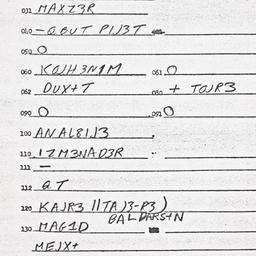 031 MAXZ3R
010 -OBUT PIJ3T
050 O
060 KOJH3N1M 061 O
062 DUX+T 080 + TOJR3
090 O 091 O
100 ANAL8IJ3
110 IZM3NAD3R
111 -
112 QT
120 KAJR3 //TAJ3-P3)
130 MAG1D
MEJX+